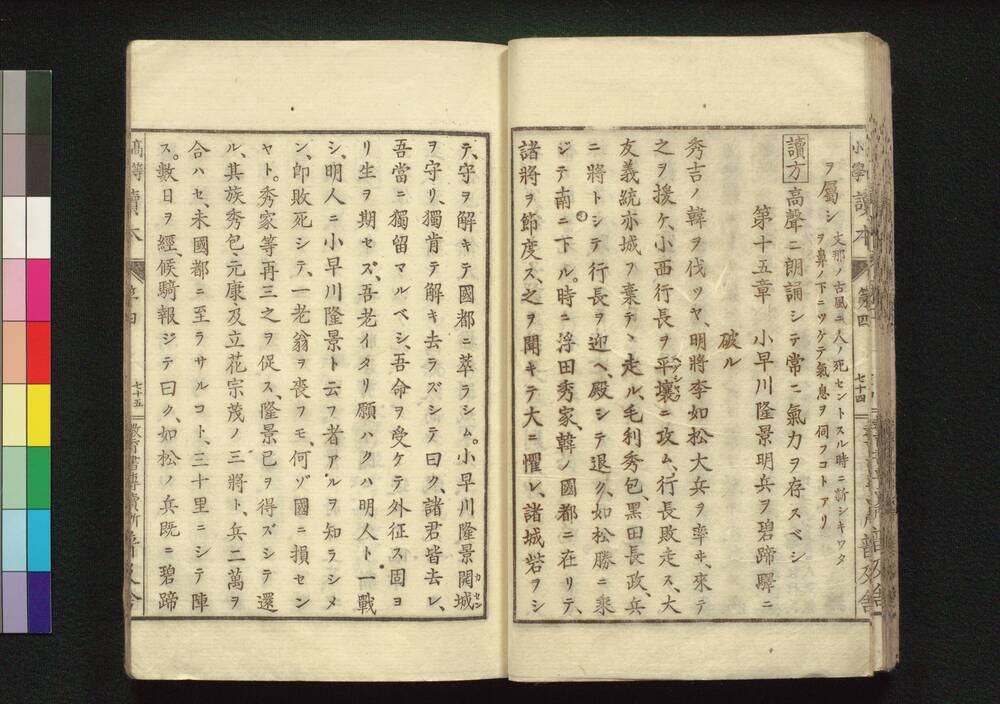 小學讀本 第四 七十四 普及舍
ヲ屬シ 支那ノ古風ニ人ノ死セントスル時ニ新シキワタ
ヲ鼻ノ下ニツケテ氣息ヲ伺フコトアリ
讀方 高聲ニ朗誦シテ常ニ氣力ヲ存スベシ
第十五章 小早川隆景明兵ヲ碧蹄驛ニ
破ル
秀吉ノ韓ヲ伐ツヤ、明將李如松大兵ヲ率ヰ、來テ
之ヲ援ケ、小西行長ヲ平壤ニ攻ム、行長敗走ス、大
友義統亦城ヲ棄テヽ走ル、毛利秀包、黑田長政、兵
ニ將トシテ行長ヲ迎ヘ、殿シテ退ク、如松勝ニ乘
ジテ南ニ下ル。時ニ浮田秀家、韓ノ國都ニ在リテ、
諸將ヲ節度ス、之ヲ聞キテ大ニ懼レ、諸城砦ヲシ
テ、守ヲ解キテ國都ニ萃ラシム。小早川隆景開城
ヲ守リ、獨肯テ解キ去ラズシテ曰ク、諸君皆去レ、
吾當ニ獨留マルベシ、吾命ヲ受ケテ外征ス固ヨ
リ生ヲ期セズ、吾老イタリ願ハクハ明人ト一戰
シ、明人ニ小早川隆景ト云フ者アルヲ知ラシメ
ン、卽敗死シテ、一老翁ヲ喪フモ、何ゾ國ニ損セン
ヤト。秀家等再三之ヲ促ス、隆景已ヲ得ズシテ還
ル、其族秀包、元康、及立花宗茂ノ三將ト、兵二萬ヲ
合ハセ、未國都ニ至ラサルコト、三十里ニシテ陣
ス。數日ヲ經、候騎報ジテ曰ク、如松ノ兵既ニ碧蹄
高等讀本 第四 七十五